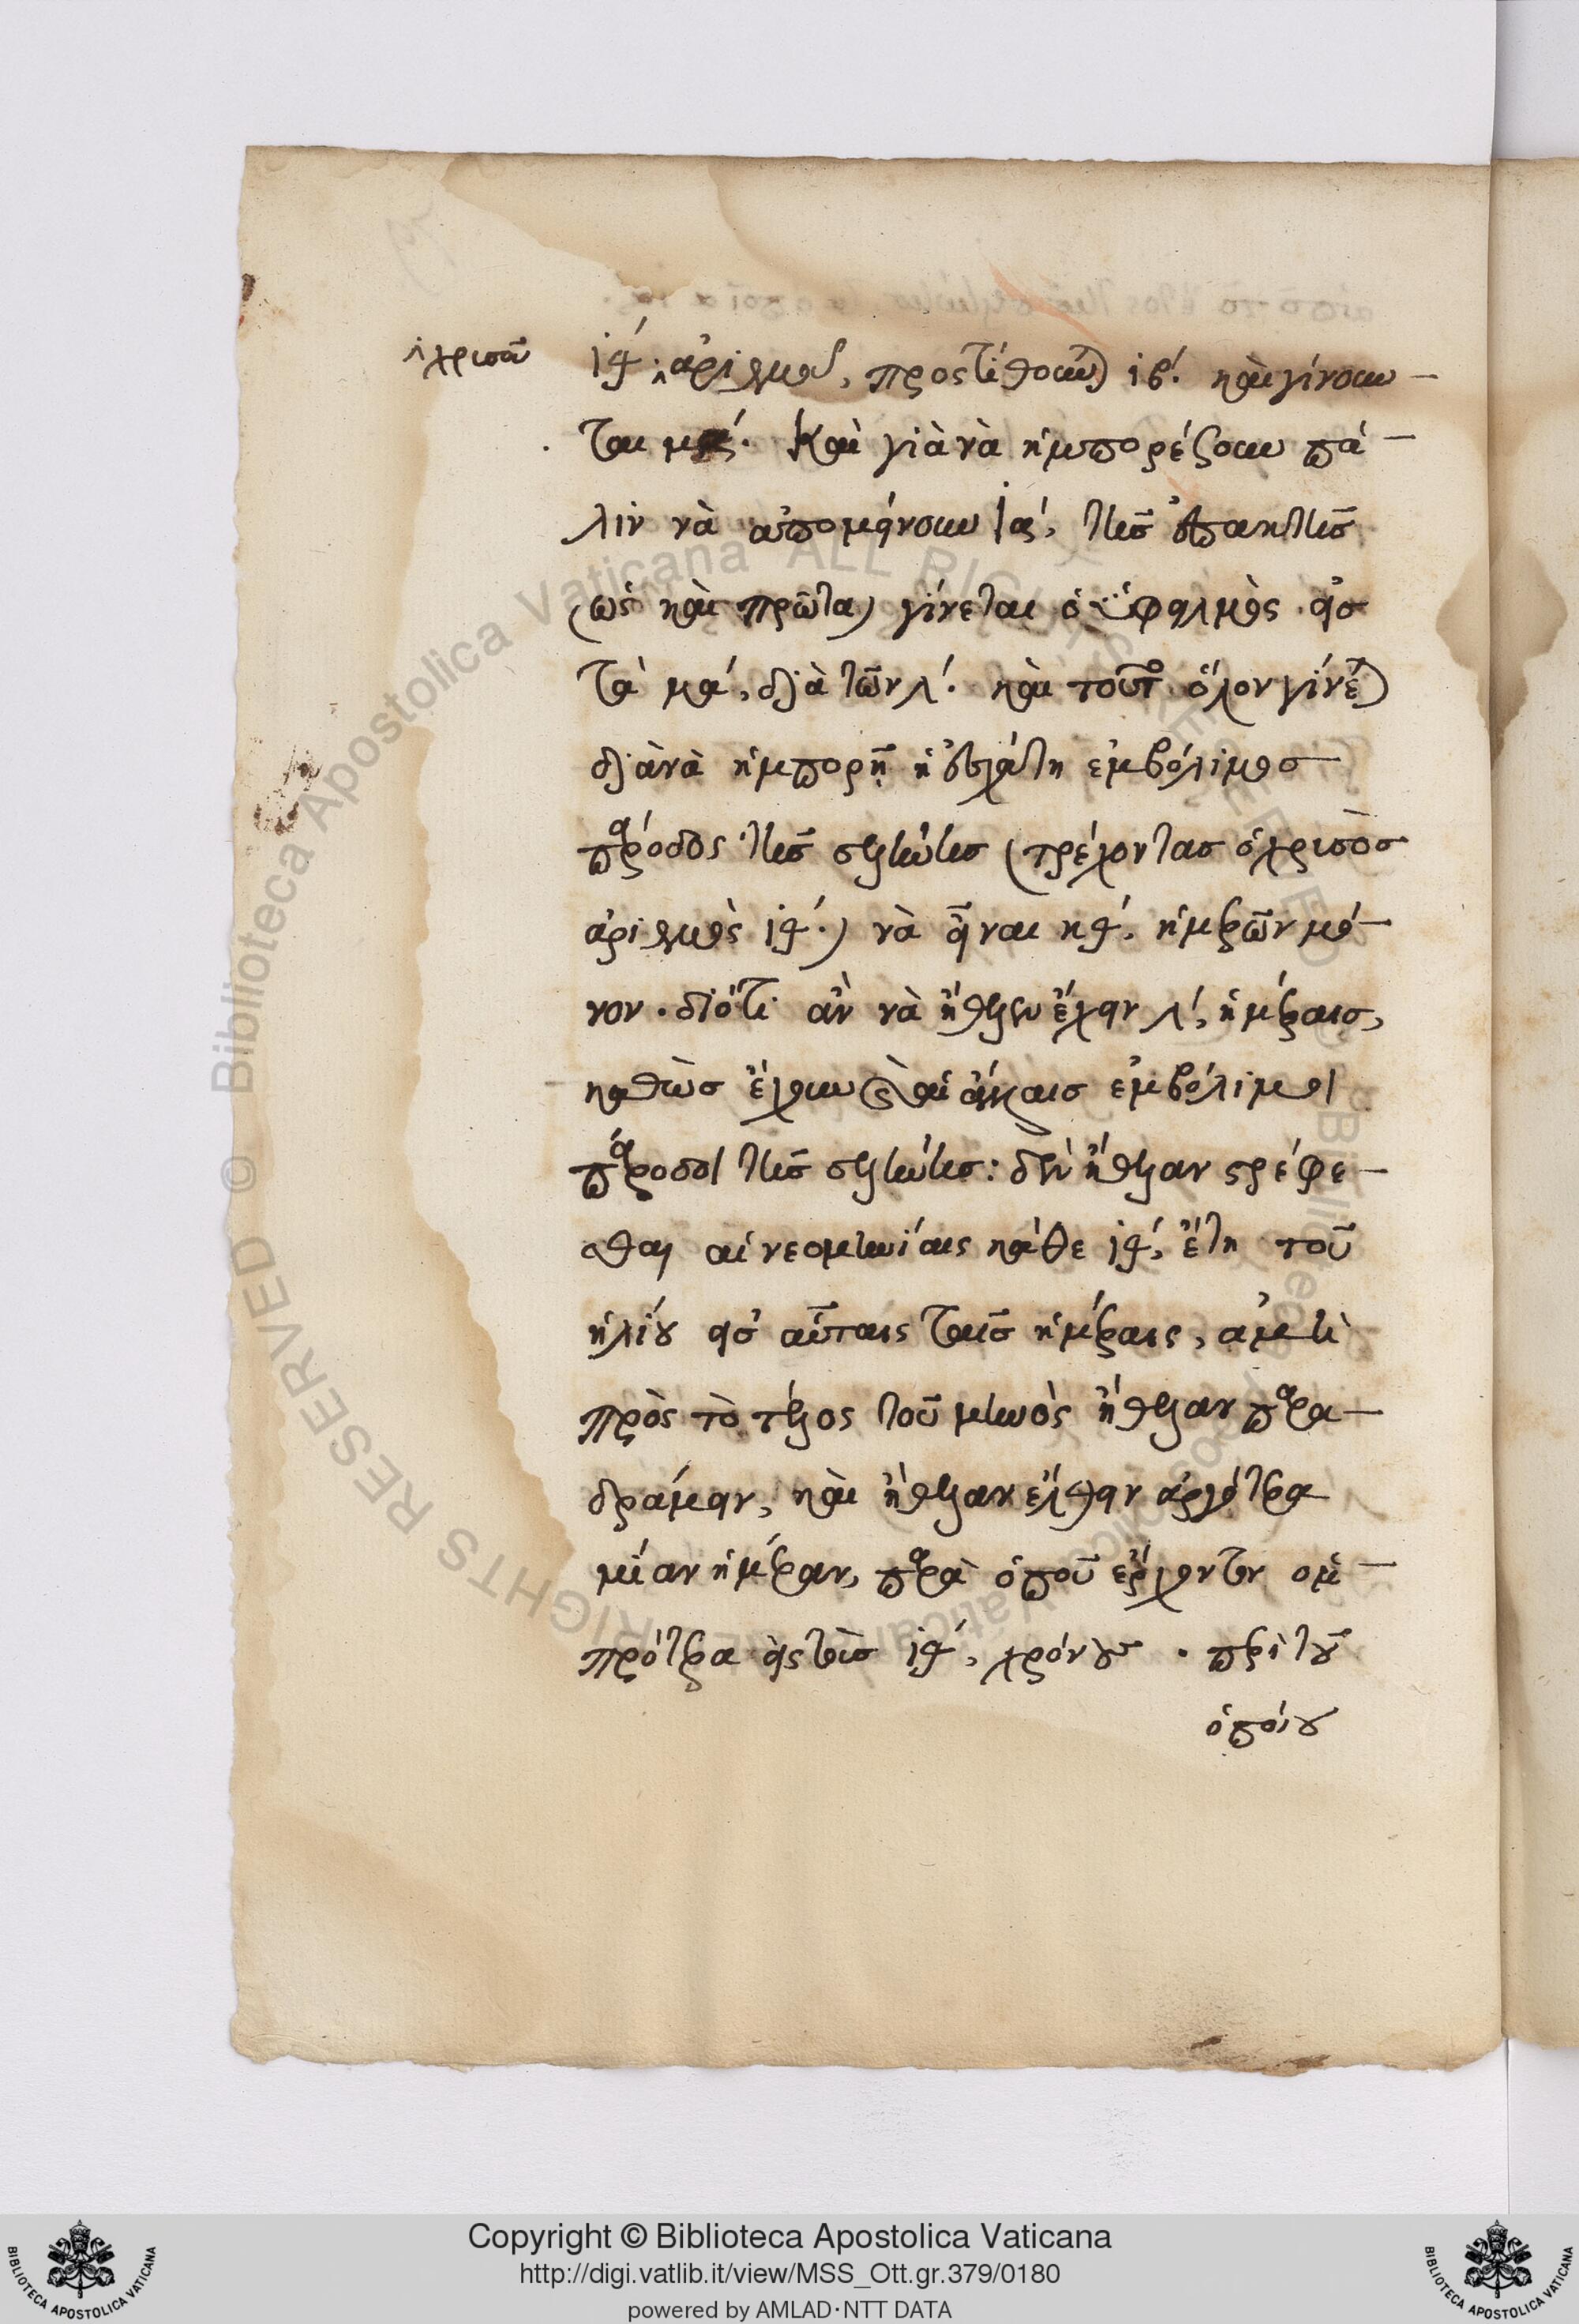 χρισοῦ
ιθ΄ ἀριθμοῦ, προστίθουνται ιβ΄. καὶ γίνουν-
ται μα΄. Καὶ γιὰ νὰ ἠμπορέζουν πά-
λιν νὰ ἀπομείνουν ια΄, τῆς ἐπακτῆς
(ὡς καὶ πρῶτα) γίνεται ὁ ὑφειλμὸς εἰσ
τὰ μα΄, διὰ τῶν λ΄. καὶ τοῦτο ὅλον γίνεται
διὰ νὰ ἠμπορῇ ἡ ἐσχάτη ἐμβόλιμοσ
πάροδος τῆς σελήνης (τρέχοντας ὁ χρισὸσ
ἀριθμὸς ιθ΄.) νὰ εἶναι κθ΄. ἡμερῶν μό-
νον. διότι ἂν νὰ ἤθελεν ἔχειν λ΄, ἡμέραισ,
καθὼσ ἔχουν ᾑ ἄλλαισ ἐμβόλιμοι
πάροδοι τῆς σελήνης: δὲν ἤθελαν ςρέφε-
σθαι αἱ νεομηνίαις κάθε ιθ΄, ἔτη τοῦ
ἡλίου εἰσ αὐταῖς ταῖσ ἡμέραις, ἀμὴ
πρὸς τὸ τέλος τοῦ μηνὸς ἤθελαν παρα-
δράμειν, καὶ ἤθελαν ἔλθειν ἀργότερα
μίαν ἡμέραν, παρὰ ὁποῦ ἔρχονταν ὀμ-
πρότερα εἰς τοὺσ ιθ΄, χρόνους. περὶ τοῦ
ὁποίου
Copyright © Biblioteca Apostolica Vaticana
http://digi.vatlib.it/view/MSS_Ott.gr.379/0180
powered by AMLAD·NTT DATA